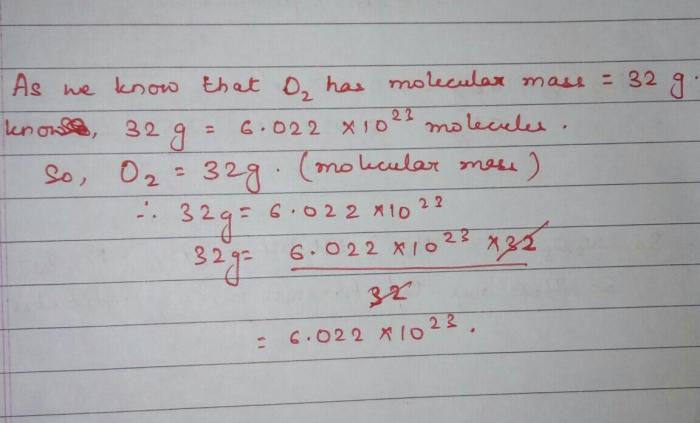 As we know that O₂ has molecular mass = 32 g.
know, 32 g = 6.022 × 10²³ molecules.
So, O₂ = 32g. (molecular mass)
∴ 32g = 6.022 × 10²³
32g = 6.022 × 10²³ × 32
32
= 6.022 × 10²³.